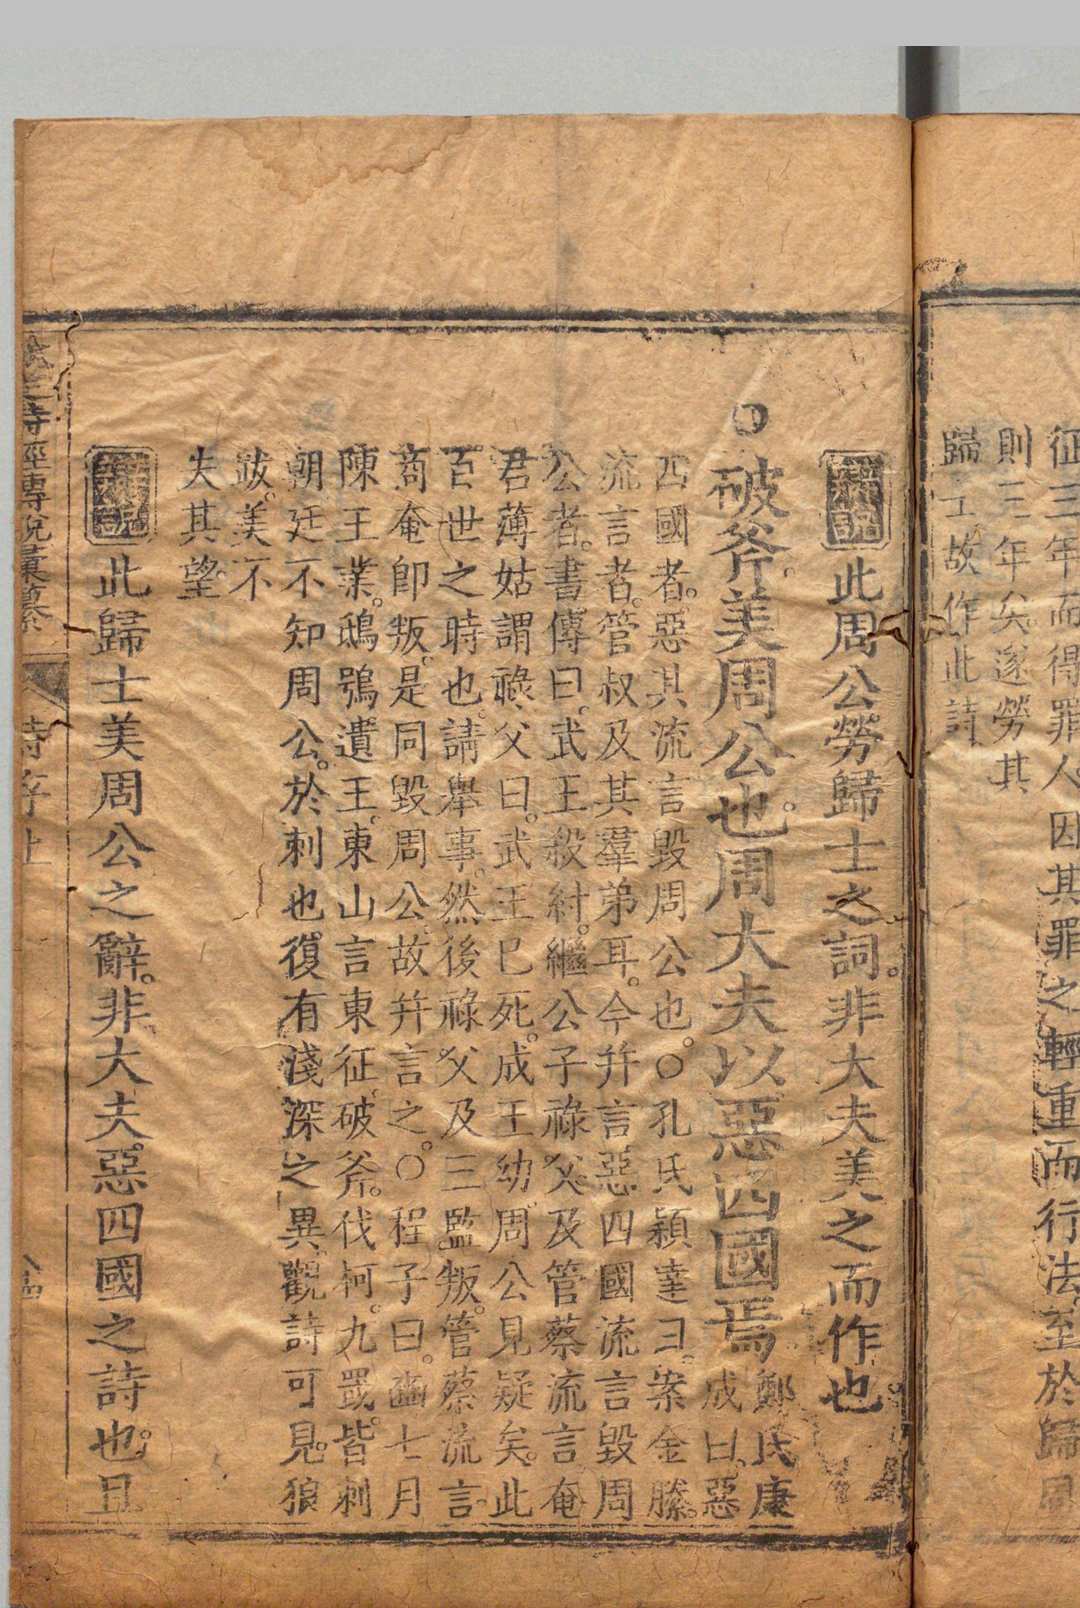 征三年而得罪人因其罪之輕重而行法至於歸周
則三年矣遂勞其
歸士故作此詩
此周公勞歸士之詞非大夫美之而作也
○破斧美周公也周大夫以惡四國焉鄭氏康
成曰惡
四國者惡其流言毀周公也○孔氏穎達曰案金縢
流言者管叔及其羣弟耳今并言惡四國流言毀周
公者書傳曰武王殺紂繼公子祿父及管蔡流言奄
君薄姑謂祿父曰武王已死成王幼周公見疑矣此
百世之時也請舉事然後祿父及三監叛管蔡流言
商奄卽叛是同毀周公故并言之○程子曰豳七月
陳王業鴟鴞遺王東山言東征破斧伐柯九罭皆刺
朝廷不知周公於刺也復有淺深之異觀詩可見狼
跋美不
失其望
此歸士美周公之辭非大夫惡四國之詩也且
詩經傳說彙纂 詩序上